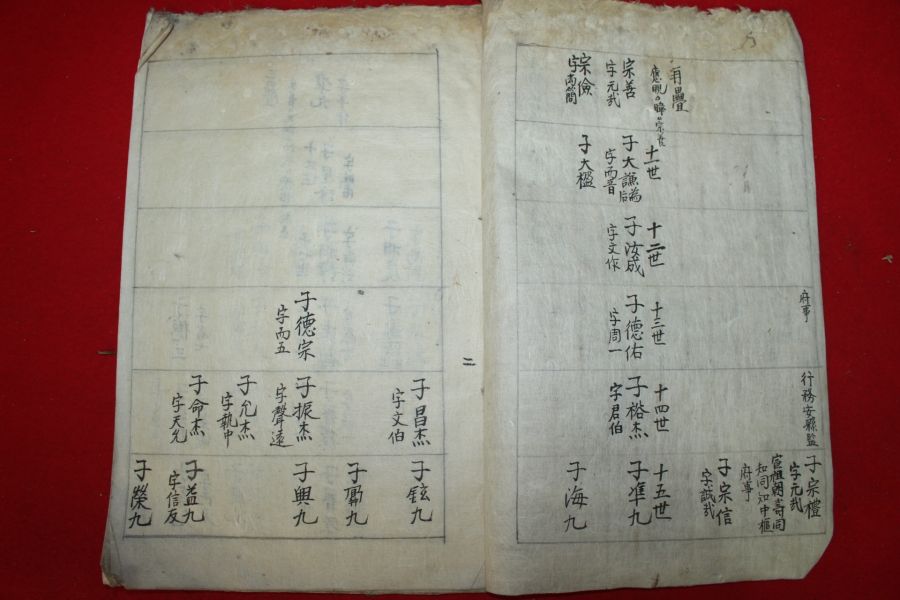 府事
行務安縣監
子宗禮
字元哉
宣祖朝壽同
知同知中樞
府事
子宗信
字誠哉
再疊
宗善
字元哉
宗儉
字
十一世
子大謙
字而音
子大楹
十二世
子汝成
字文作
十三世
子德佑
字周一
十四世
子裕杰
字君伯
十五世
子準九
子海九
二
子德宗
字而五
子昌杰
字文伯
子振杰
字聲遠
子允杰
字執中
子命杰
字天允
子鉉九
子九
子興九
子益九
字信友
子榮九